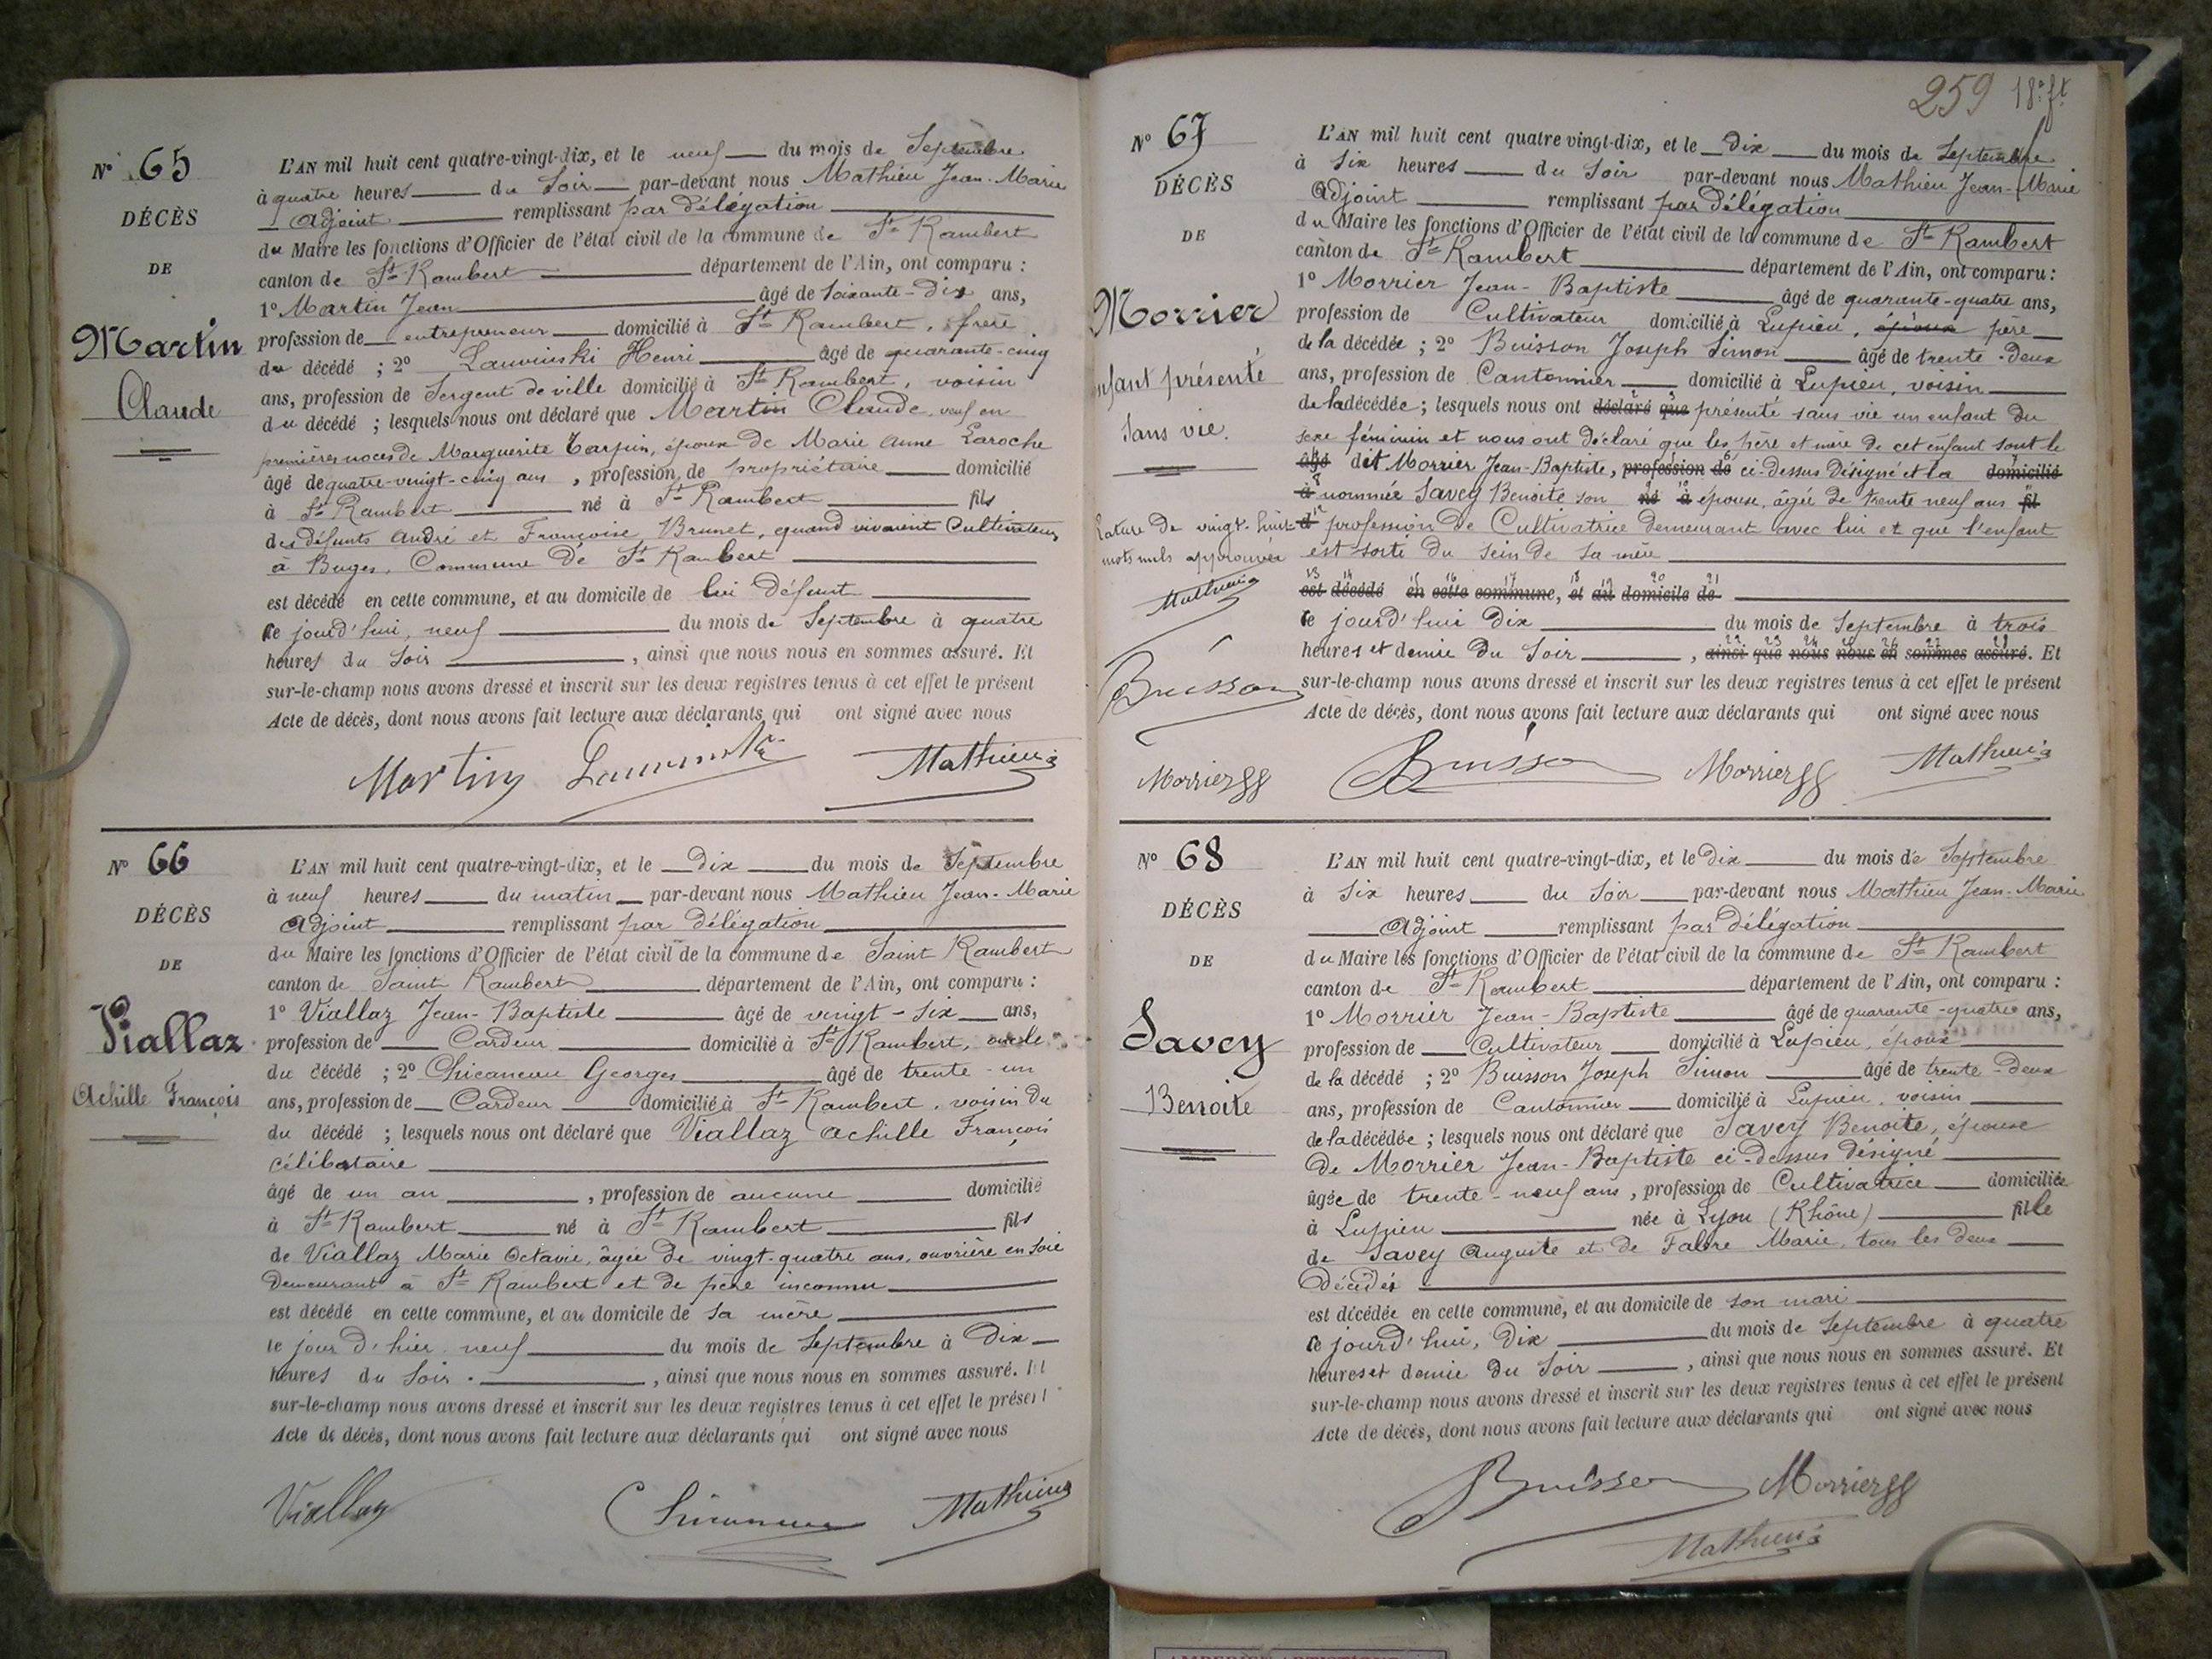 N° 65
DÉCÈS
DE
Martin
Claude
L'AN mil huit cent quatre-vingt-dix, et le neuf du mois de Septembre
à quatre heures du Soir par-devant nous Mathieu Jean-Marie
Adjoint remplissant par délégation
du Maire les fonctions d'Officier de l'état civil de la commune de St Rambert
canton de St Rambert département de l'Ain, ont comparu :
1° Martin Jean âgé de soixante-dix ans,
profession de entrepreneur domicilié à St Rambert, frère
du décédé ; 2° Henri âgé de quarante-cinq
ans, profession de Sergent de ville domicilié à St Rambert, voisin
du décédé ; lesquels nous ont déclaré que Martin Claude, veuf en
premières noces de Marguerite Tarpin, époux de Marie Anne Laroche
âgé de quatre-vingt-cinq ans, profession de propriétaire domicilié
à St Rambert né à St Rambert fils
des défunts André et Françoise Brunet, quand vivaient Cultivateurs
à Buges, Commune de St Rambert
est décédé en cette commune, et au domicile de lui défunt
ce jourd'hui, neuf du mois de Septembre à quatre
heures du Soir, ainsi que nous nous en sommes assuré. Et
sur-le-champ nous avons dressé et inscrit sur les deux registres tenus à cet effet le présent
Acte de décès, dont nous avons fait lecture aux déclarants qui ont signé avec nous
Martin Mathieu
N° 66
DÉCÈS
DE
Viallaz
Achille François
L'AN mil huit cent quatre-vingt-dix, et le Dix du mois de Septembre
à neuf heures du matin par-devant nous Mathieu Jean-Marie
Adjoint remplissant par délégation
du Maire les fonctions d'Officier de l'état civil de la commune de Saint Rambert
canton de Saint Rambert département de l'Ain, ont comparu :
1° Viallaz Jean-Baptiste âgé de vingt-six ans,
profession de Cardeur domicilié à St Rambert, oncle
du décédé ; 2° Chicaneau Georges âgé de trente-un
ans, profession de Cardeur domicilié à St Rambert, voisin du
du décédé ; lesquels nous ont déclaré que Viallaz Achille François
célibataire
âgé de un an, profession de aucune domicilié
à St Rambert né à St Rambert fils
de Viallaz Marie Octavie, âgée de vingt-quatre ans, ouvrière en soie
Demeurant à St Rambert et de père inconnu
est décédé en cette commune, et au domicile de sa mère
le jour d'hier neuf du mois de Septembre à Dix
heures du Soir, ainsi que nous nous en sommes assuré. Et
sur-le-champ nous avons dressé et inscrit sur les deux registres tenus à cet effet le présent
Acte de décès, dont nous avons fait lecture aux déclarants qui ont signé avec nous
Viallaz Mathieu
259 18e ft
N° 67
DÉCÈS
DE
Morrier
enfant présenté
Sans vie.
Rature de vingt-huit
mots nuls approuvée
Mathieu
Buisson
Morrier
L'AN mil huit cent quatre vingt-dix, et le Dix du mois de Septembre
à Six heures du Soir par-devant nous Mathieu Jean-Marie
Adjoint remplissant par délégation
du Maire les fonctions d'Officier de l'état civil de la commune de St Rambert
canton de St Rambert département de l'Ain, ont comparu :
1° Morrier Jean-Baptiste âgé de quarante-quatre ans,
profession de Cultivateur domicilié à Lupieu, époux père
de la décédée ; 2° Buisson Joseph Simon âgé de trente-deux
ans, profession de Cantonnier domicilié à Lupieu, voisin
de la décédée ; lesquels nous ont déclaré que présenté sans vie un enfant du
sexe féminin et nous ont déclaré que les père et mère de cet enfant sont le
âgé dit Morrier Jean-Baptiste, profession de ci-dessus désigné et la domicilié
à nommée Savey Benoite son né à épouse, âgée de trente neuf ans fil
d profession de Cultivatrice demeurant avec lui et que l'enfant
est sorti du sein de sa mère
13 14 15 16 17 18 19 20 21
est décédé en cette commune, et au domicile de
ce jourd'hui Dix du mois de Septembre à trois
22 23 24 25 26 27 28
heures et demie du Soir, ainsi que nous nous en sommes assuré. Et
sur-le-champ nous avons dressé et inscrit sur les deux registres tenus à cet effet le présent
Acte de décès, dont nous avons fait lecture aux déclarants qui ont signé avec nous
Buisson Morrier Mathieu
N° 68
DÉCÈS
DE
Savey
Benoite
L'AN mil huit cent quatre-vingt-dix, et le Dix du mois de Septembre
à Six heures du Soir par-devant nous Mathieu Jean-Marie
Adjoint remplissant par délégation
du Maire les fonctions d'Officier de l'état civil de la commune de St Rambert
canton de St Rambert département de l'Ain, ont comparu :
1° Morrier Jean-Baptiste âgé de quarante-quatre ans,
profession de Cultivateur domicilié à Lupieu, époux
de la décédé ; 2° Buisson Joseph Simon âgé de trente-deux
ans, profession de Cantonnier domicilié à Lupieu, voisin
de la décédée ; lesquels nous ont déclaré que Savey Benoite, épouse
De Morrier Jean-Baptiste ci-dessus désigné
âgée de trente-neuf ans, profession de Cultivatrice domiciliée
à Lupieu née à Lyon (Rhône) fille
de Savey Auguste et de Fabre Marie, tous les deux
Décédés
est décédée en cette commune, et au domicile de son mari
ce jourd'hui, Dix du mois de Septembre à quatre
heures et demie du Soir, ainsi que nous nous en sommes assuré. Et
sur-le-champ nous avons dressé et inscrit sur les deux registres tenus à cet effet le présent
Acte de décès, dont nous avons fait lecture aux déclarants qui ont signé avec nous
Buisson Morrier
Mathieu